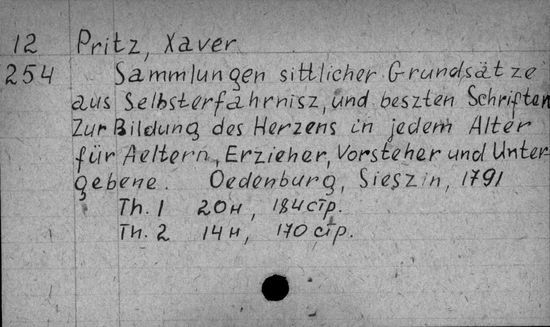 12 Pritz, Xaver
254 Sammlungen sittlicher Grundsätze
aus Selbsterfahrnisz, und beszten Schriften
Zur Bildung des Herzens in jedem Alter
für Aeltern, Erzieher, Vorsteher und Unter
gebene. Oedenburg, Sieszin, 1791
Th. 1 20н, 184 стр.
Th. 2 14н, 170 стр.